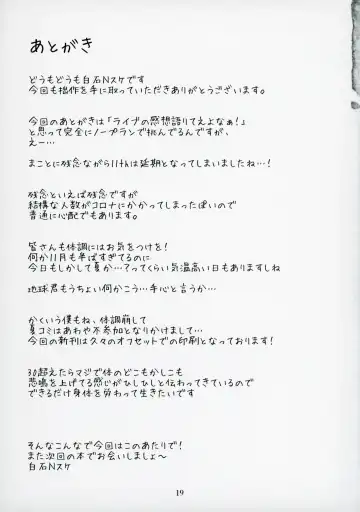 あとがき
どうもどうも白石Nスケです
今回も拙作を手に取っていただきありがとうございます。
今回のあとがきは「ライブの感想語りてえよなぁ!」
と思って完全にノープランで挑んでるんですが、
えー…
まことに残念ながら11thは延期となってしまいましたね…!
残念といえば残念ですが
結構な人数がコロナにかかってしまったぽいので
普通に心配でもあります。
皆さんも体調にはお気をつけを!
何か11月も半ばすぎてるのに
今日もしかして夏か…?ってくらい気温高い日もありますしね
地球君もうちょい何かこう…手心と言うか…
かくいう僕もね、体調崩して
夏コミはあわや不参加となりかけまして…
今回の新刊は久々のオフセットでの印刷となっております!
30超えたらマジで体のどこかしこも
悲鳴を上げてる感じがひしひしと伝わってきているので
できるだけ身体を労わって生きたいです
そんなこんなで今回はこのあたりで!
また次回の本でお会いしましょ〜
白石Nスケ
19